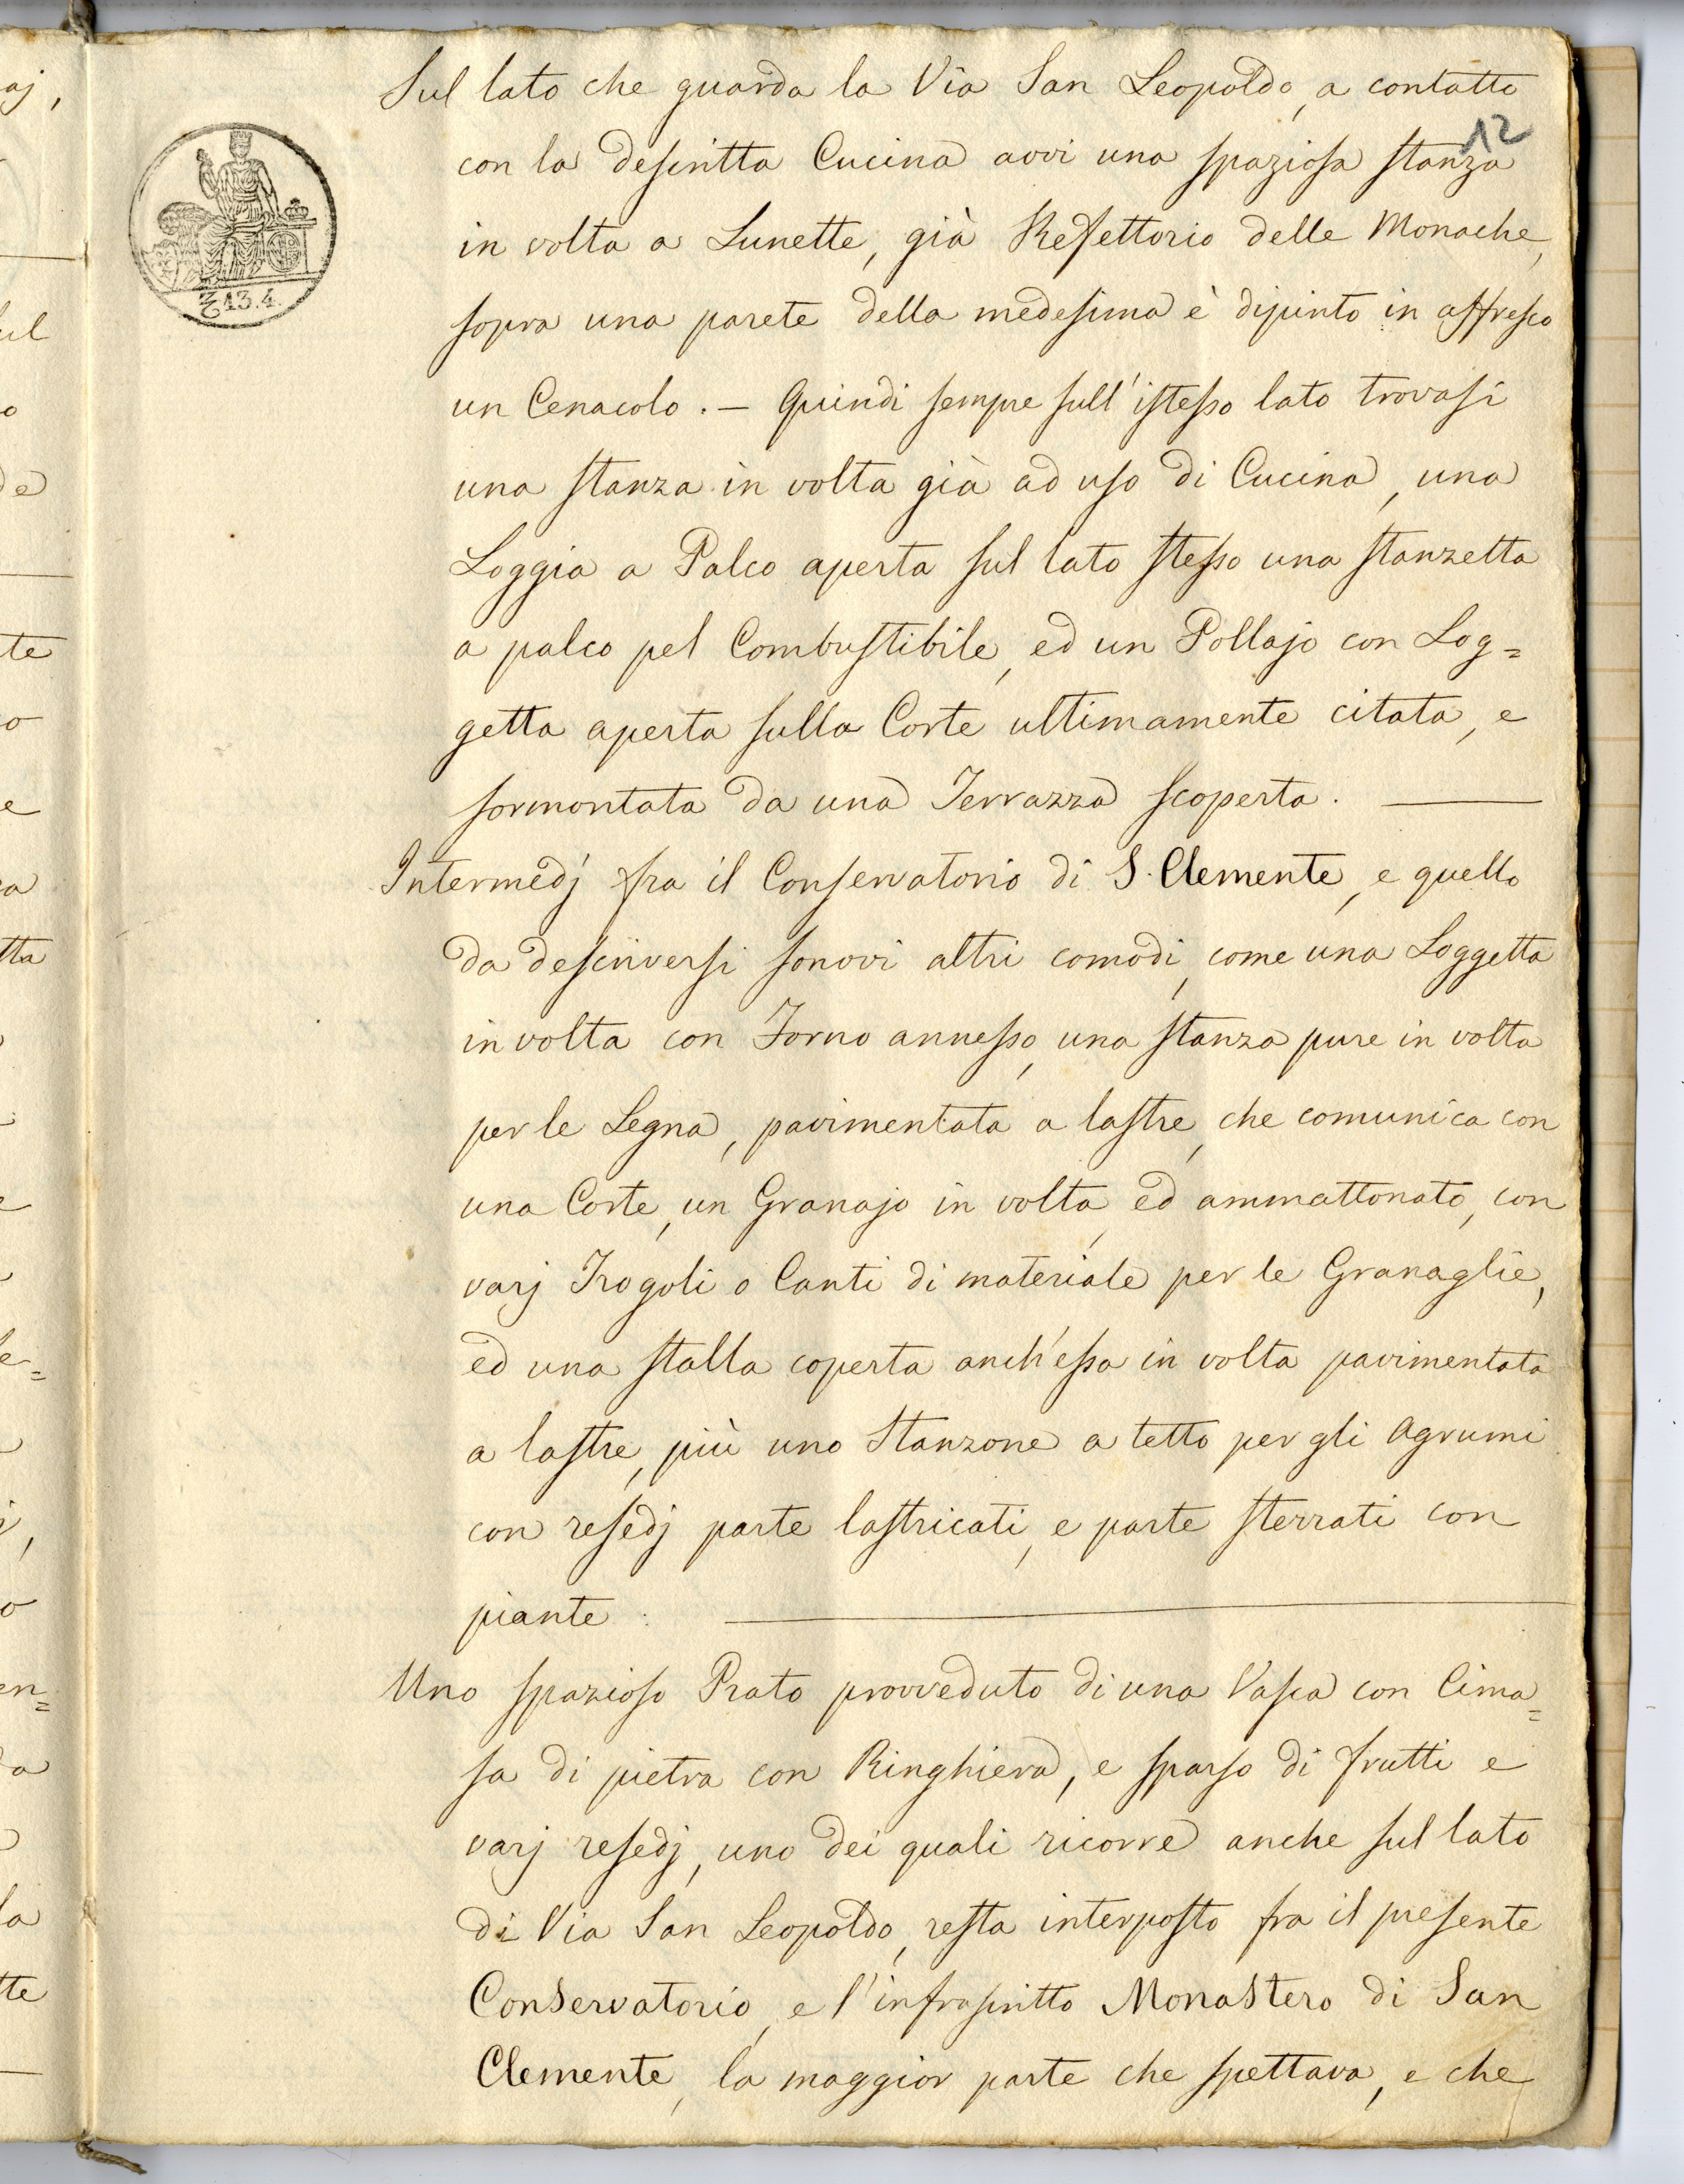 Sul lato che guarda la Via San Leopoldo, a contatto
12
con la descritta Cucina avvi una spaziosa stanza
in volta a Lunette, già Refettorio delle Monache,
sopra una parete della medesima è dipinto in affresco
un Cenacolo. — Quindi sempre sull'istesso lato trovasi
una stanza in volta già ad uso di Cucina, una
Loggia a Palco aperta sul lato stesso una stanzetta
a palco pel Combustibile, ed un Pollajo con Log=
getta aperta sulla Corte ultimamente citata, e
sormontata da una Terrazza scoperta. —
Intermedj fra il Conservatorio di S. Clemente, e quello
da descriversi sonovi altri comodi, come una Loggetta
in volta con Forno annesso, una stanza pure in volta
per le Legna, pavimentata a lastre, che comunica con
una Corte, un Granajo in volta, ed ammattonato, con
varj Trogoli o Canti di materiale per le Granaglie,
ed una stalla coperta anch'essa in volta pavimentata
a lastre, più uno Stanzone a tetto per gli Agrumi
con resedj parte lastricati, e parte sterrati con
piante. —
Uno spazioso Prato provveduto di una Vasca con Cima=
sa di pietra con Ringhiera, e sparso di frutti e
varj resedj, uno dei quali ricorre anche sul lato
di Via San Leopoldo, resta interposto fra il presente
Conservatorio, e l'infrascritto Monastero di San
Clemente, la maggior parte che spettava, e che
13.4.